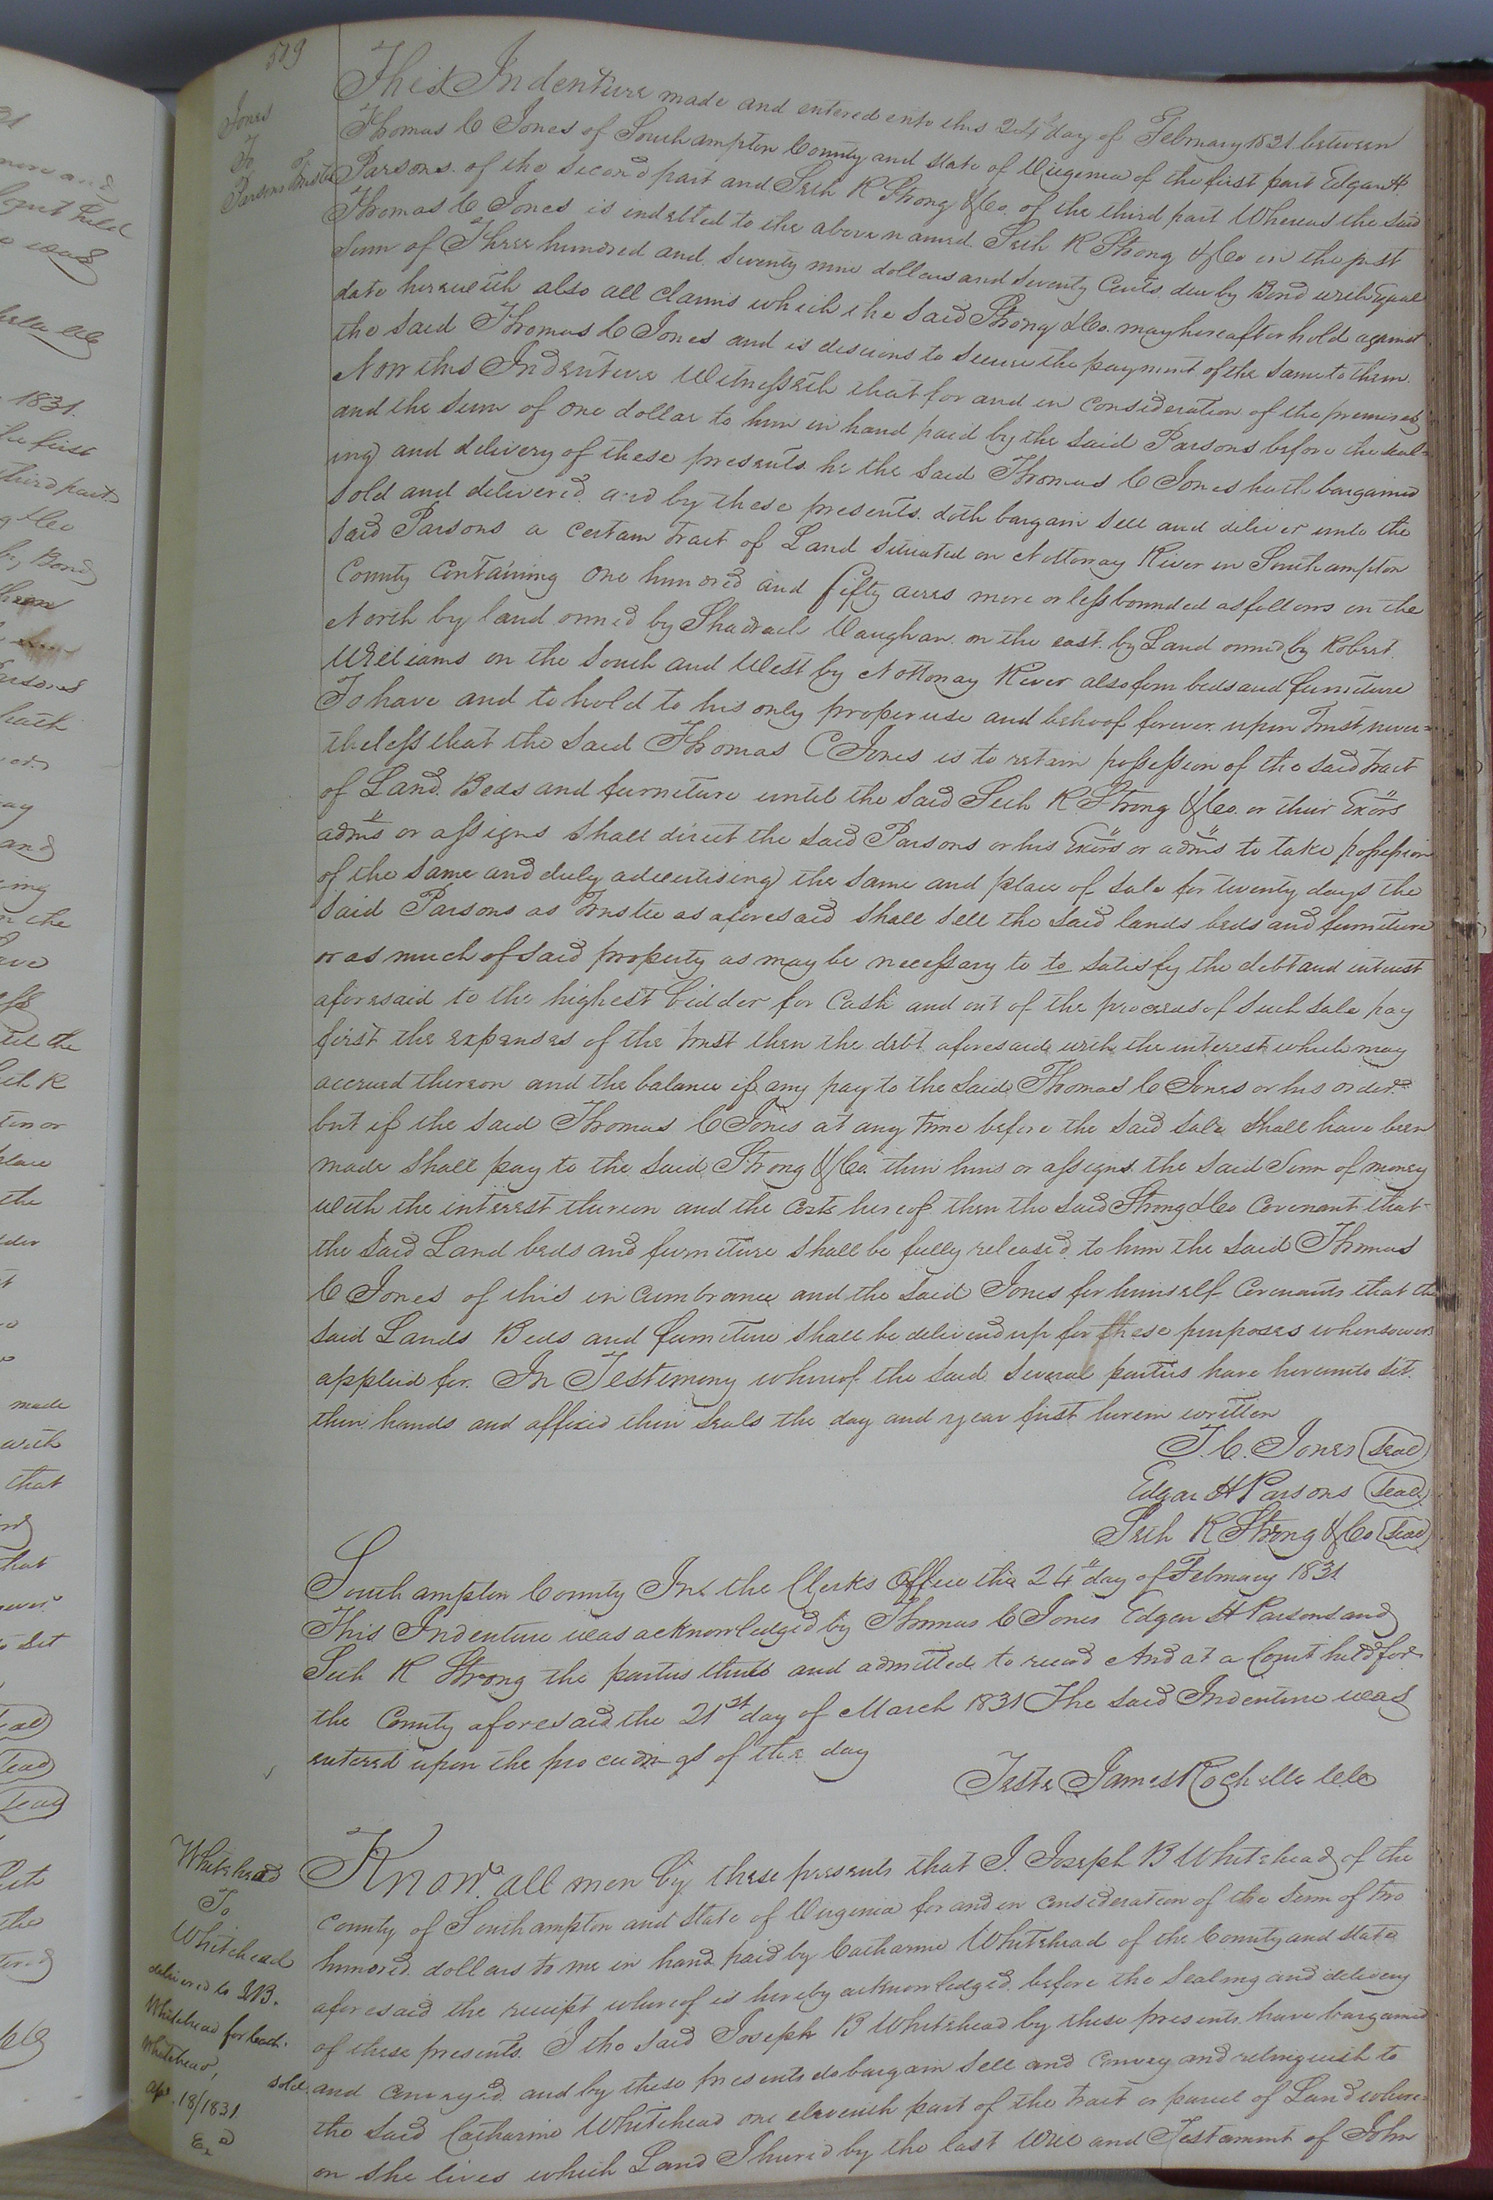 519
Jones
To
Parsons Trustee
This Indenture made and entered into this 24th day of February 1831 between
Thomas C Jones of Southampton County and State of Virginia of the first part Edgar H
Parsons of the second part and Seth R Strong & Co. of the third part Whereas the said
Thomas C Jones is indebted to the above named Seth R Strong & Co in the just
Sum of Three hundred and Seventy nine dollars and Seventy Cents due by Bond with Equal
date herewith also all claims which the said Strong & Co. may hereafter hold against
the said Thomas C Jones and is desirous to secure the payment of the same to them.
Now this Indenture Witnesseth that for and in consideration of the premises
and the sum of one dollar to him in hand paid by the said Parsons before the seal=
ing and delivery of these presents he the said Thomas C Jones hath bargained
sold and delivered and by these presents doth bargain sell and deliver unto the
said Parsons a certain tract of Land situated on Nottoway River in Southampton
County containing one hundred and fifty acres more or less bounded as follows on the
North by land owned by Shadrach Vaughan. on the east. by Land owned by Robert
Williams on the South and West by Nottoway River also four beds and furniture
To have and to hold to his only proper use and behoof forever upon Trust never=
theless that the said Thomas C Jones is to retain possession of the said tract
of Land Beds and furniture until the said Seth R Strong & Co. or their Exors
adms or assigns shall direct the said Parsons or his Exors or adms to take possession
of the same and duly advertising the same and place of sale for twenty days the
said Parsons as Trustee as aforesaid shall sell the said lands beds and furniture
or as much of said property as may be necessary to to satisfy the debt and interest
aforesaid to the highest bidder for Cash and out of the proceeds of such sale pay
first the expenses of the trust then the debt aforesaid with the interest which may
accrued thereon and the balance if any pay to the said Thomas C Jones or his order
but if the said Thomas C Jones at any time before the said sale shall have been
made shall pay to the said Strong & Co. their heirs or assigns the said Sum of money
with the interest thereon and the costs hereof then the said Strong & Co Covenant that
the said Land beds and furniture shall be fully released to him the said Thomas
C Jones of this in cumbrance and the said Jones for himself Covenants that the
said Lands Beds and furniture shall be delivered up for these purposes whensoever
applied for. In Testimony whereof the said several parties have hereunto set
their hands and affixed their seals the day and year first herein written
T. C. Jones (seal)
Edgar H Parsons (seal)
Seth R Strong & Co (seal)
Southampton County In the Clerks Office the 24th day of February 1831
This Indenture was acknowledged by Thomas C Jones Edgar H Parsons and
Seth R Strong the parties thereto and admitted to record And at a Court held for
the County aforesaid the 21st day of March 1831 The said Indenture was
entered upon the proceedings of the day
Teste James Rochelle Clk
Whitehead
To
Whitehead
delivered to J.B.
Whitehead for Cath.
Whitehead,
Apl. 18/1831.
Exd
Know all men by these presents that I. Joseph B Whitehead of the
County of Southampton and State of Virginia for and in consideration of the Sum of two
hundred dollars to me in hand paid by Catharine Whitehead of the County and State
aforesaid the receipt whereof is hereby acknowledged before the sealing and delivery
of these presents. I the said Joseph B Whitehead by these presents have bargained
sold and conveyed and by these presents do bargain sell and convey and relinquish to
the said Catharine Whitehead one eleventh part of the tract or parcel of Land where=
on she lives which Land I hured by the last Will and Testament of John